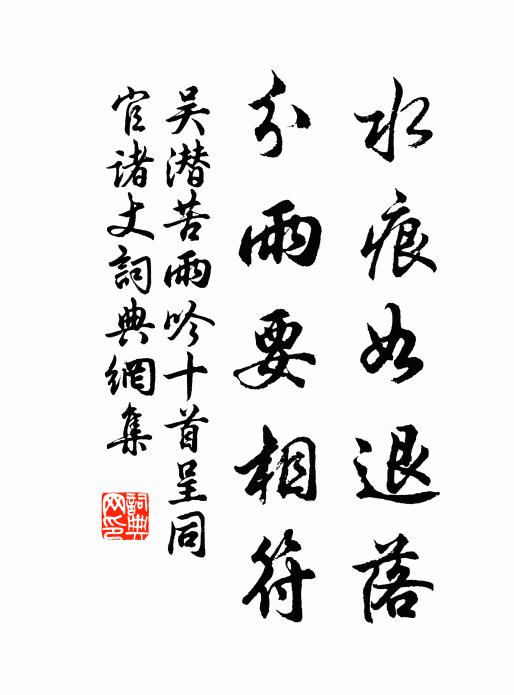 水痕如退落
分雨要相符
吴潜苦雨吟十首呈同
官诸丈詞典網集
詞典网印